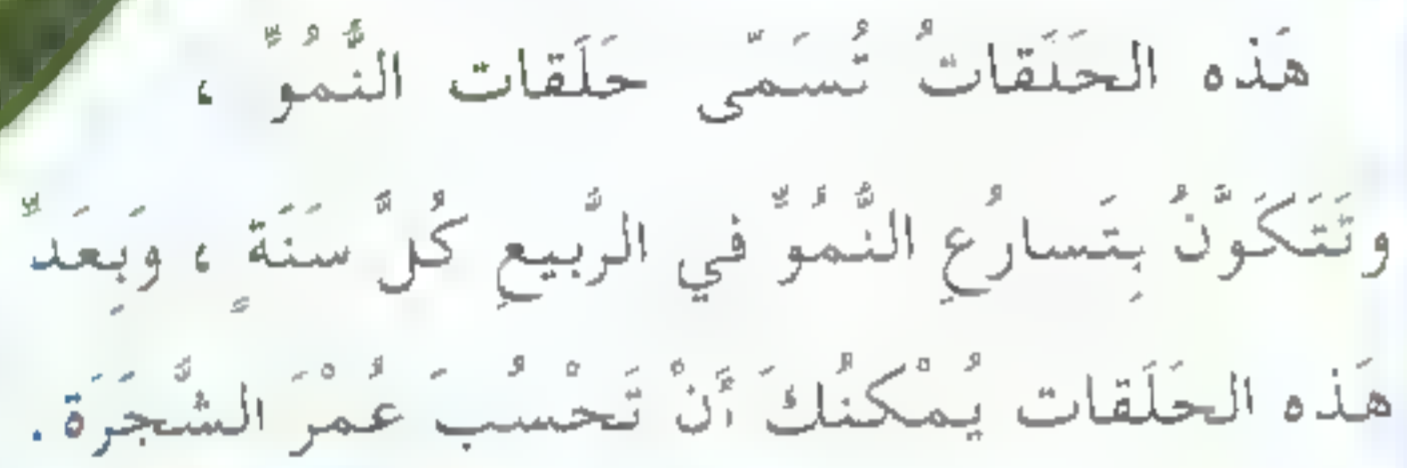 هَذه الحَلَقاتُ تُسَمّى حَلَقات النُّمُوِّ ،
وتَتَكَوَّنُ بِتَسارُعِ النُّمُوِّ في الرَّبيعِ كُلَّ سَنَةٍ ، وَبِعَدِّ
هَذه الحَلَقات يُمْكنُكَ أَنْ تَحْسُبَ عُمْرَ الشَّجَرَة .